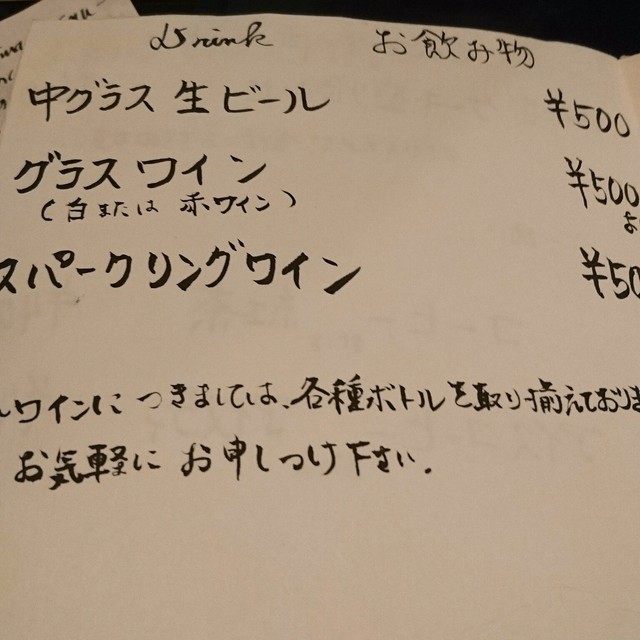 Drink お飲み物
中グラス 生ビール ¥500
グラスワイン ¥500
(白または 赤ワイン) よ
スパークリングワイン ¥50
ワインにつきましては、各種ボトルを取り揃えており
お気軽に お申しつけ下さい.